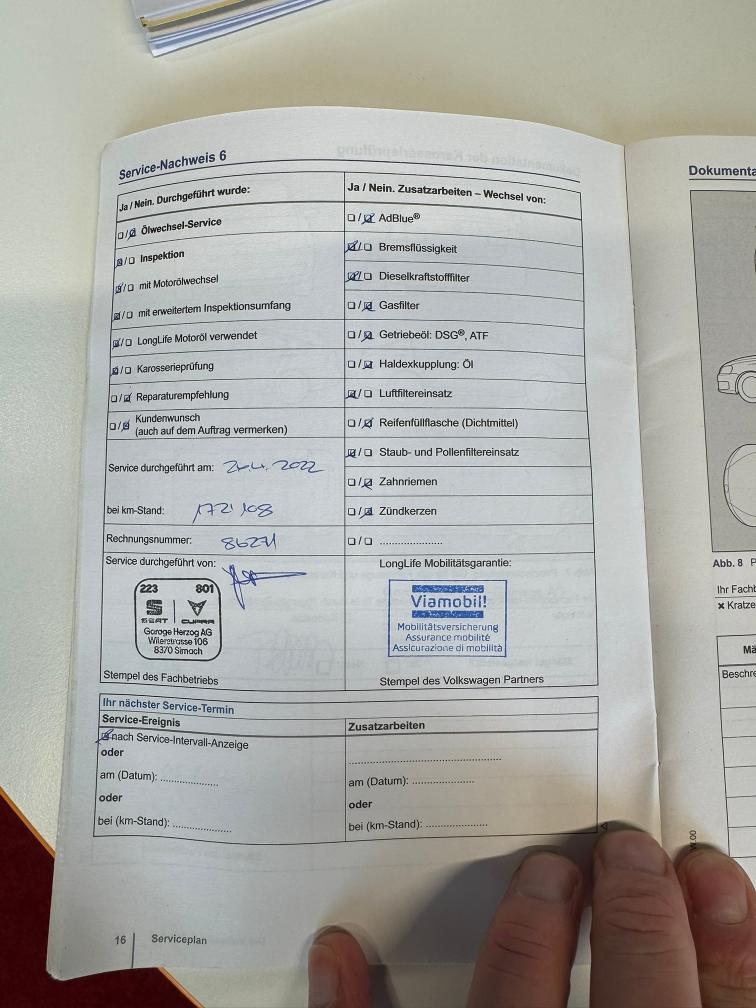 Service-Nachweis 6
Ja / Nein. Durchgeführt wurde:
☐/☑ Ölwechsel-Service
☑/☐ Inspektion
☑/☐ mit Motorölwechsel
☑/☐ mit erweitertem Inspektionsumfang
☑/☐ LongLife Motoröl verwendet
☑/☐ Karosserieprüfung
☐/☑ Reparaturempfehlung
☐/☑ Kundenwunsch
(auch auf dem Auftrag vermerken)
Service durchgeführt am: 2 .4.2022
bei km-Stand: 172'108
Rechnungsnummer: 86271
Service durchgeführt von:
223 801
SEAT | CUPRA
Garage Herzog AG
Wilerstrasse 106
8370 Sirnach
Stempel des Fachbetriebs
Ja / Nein. Zusatzarbeiten – Wechsel von:
☐/☑ AdBlue®
☑/☐ Bremsflüssigkeit
☑/☐ Dieselkraftstofffilter
☐/☑ Gasfilter
☐/☑ Getriebeöl: DSG®, ATF
☐/☑ Haldexkupplung: Öl
☑/☐ Luftfiltereinsatz
☐/☑ Reifenfüllflasche (Dichtmittel)
☑/☐ Staub- und Pollenfiltereinsatz
☐/☑ Zahnriemen
☐/☑ Zündkerzen
☐/☐ ......................
LongLife Mobilitätsgarantie:
Viamobil!
Mobilitätsversicherung
Assurance mobilité
Assicurazione di mobilità
Stempel des Volkswagen Partners
Ihr nächster Service-Termin
Service-Ereignis
☑ nach Service-Intervall-Anzeige
oder
am (Datum): ....................
oder
bei (km-Stand): ....................
Zusatzarbeiten
......................................................
am (Datum): ......................
oder
bei (km-Stand): ......................
16 Serviceplan
Dokumenta
Abb. 8 P
Ihr Fachb
× Kratze
Mä
Beschre